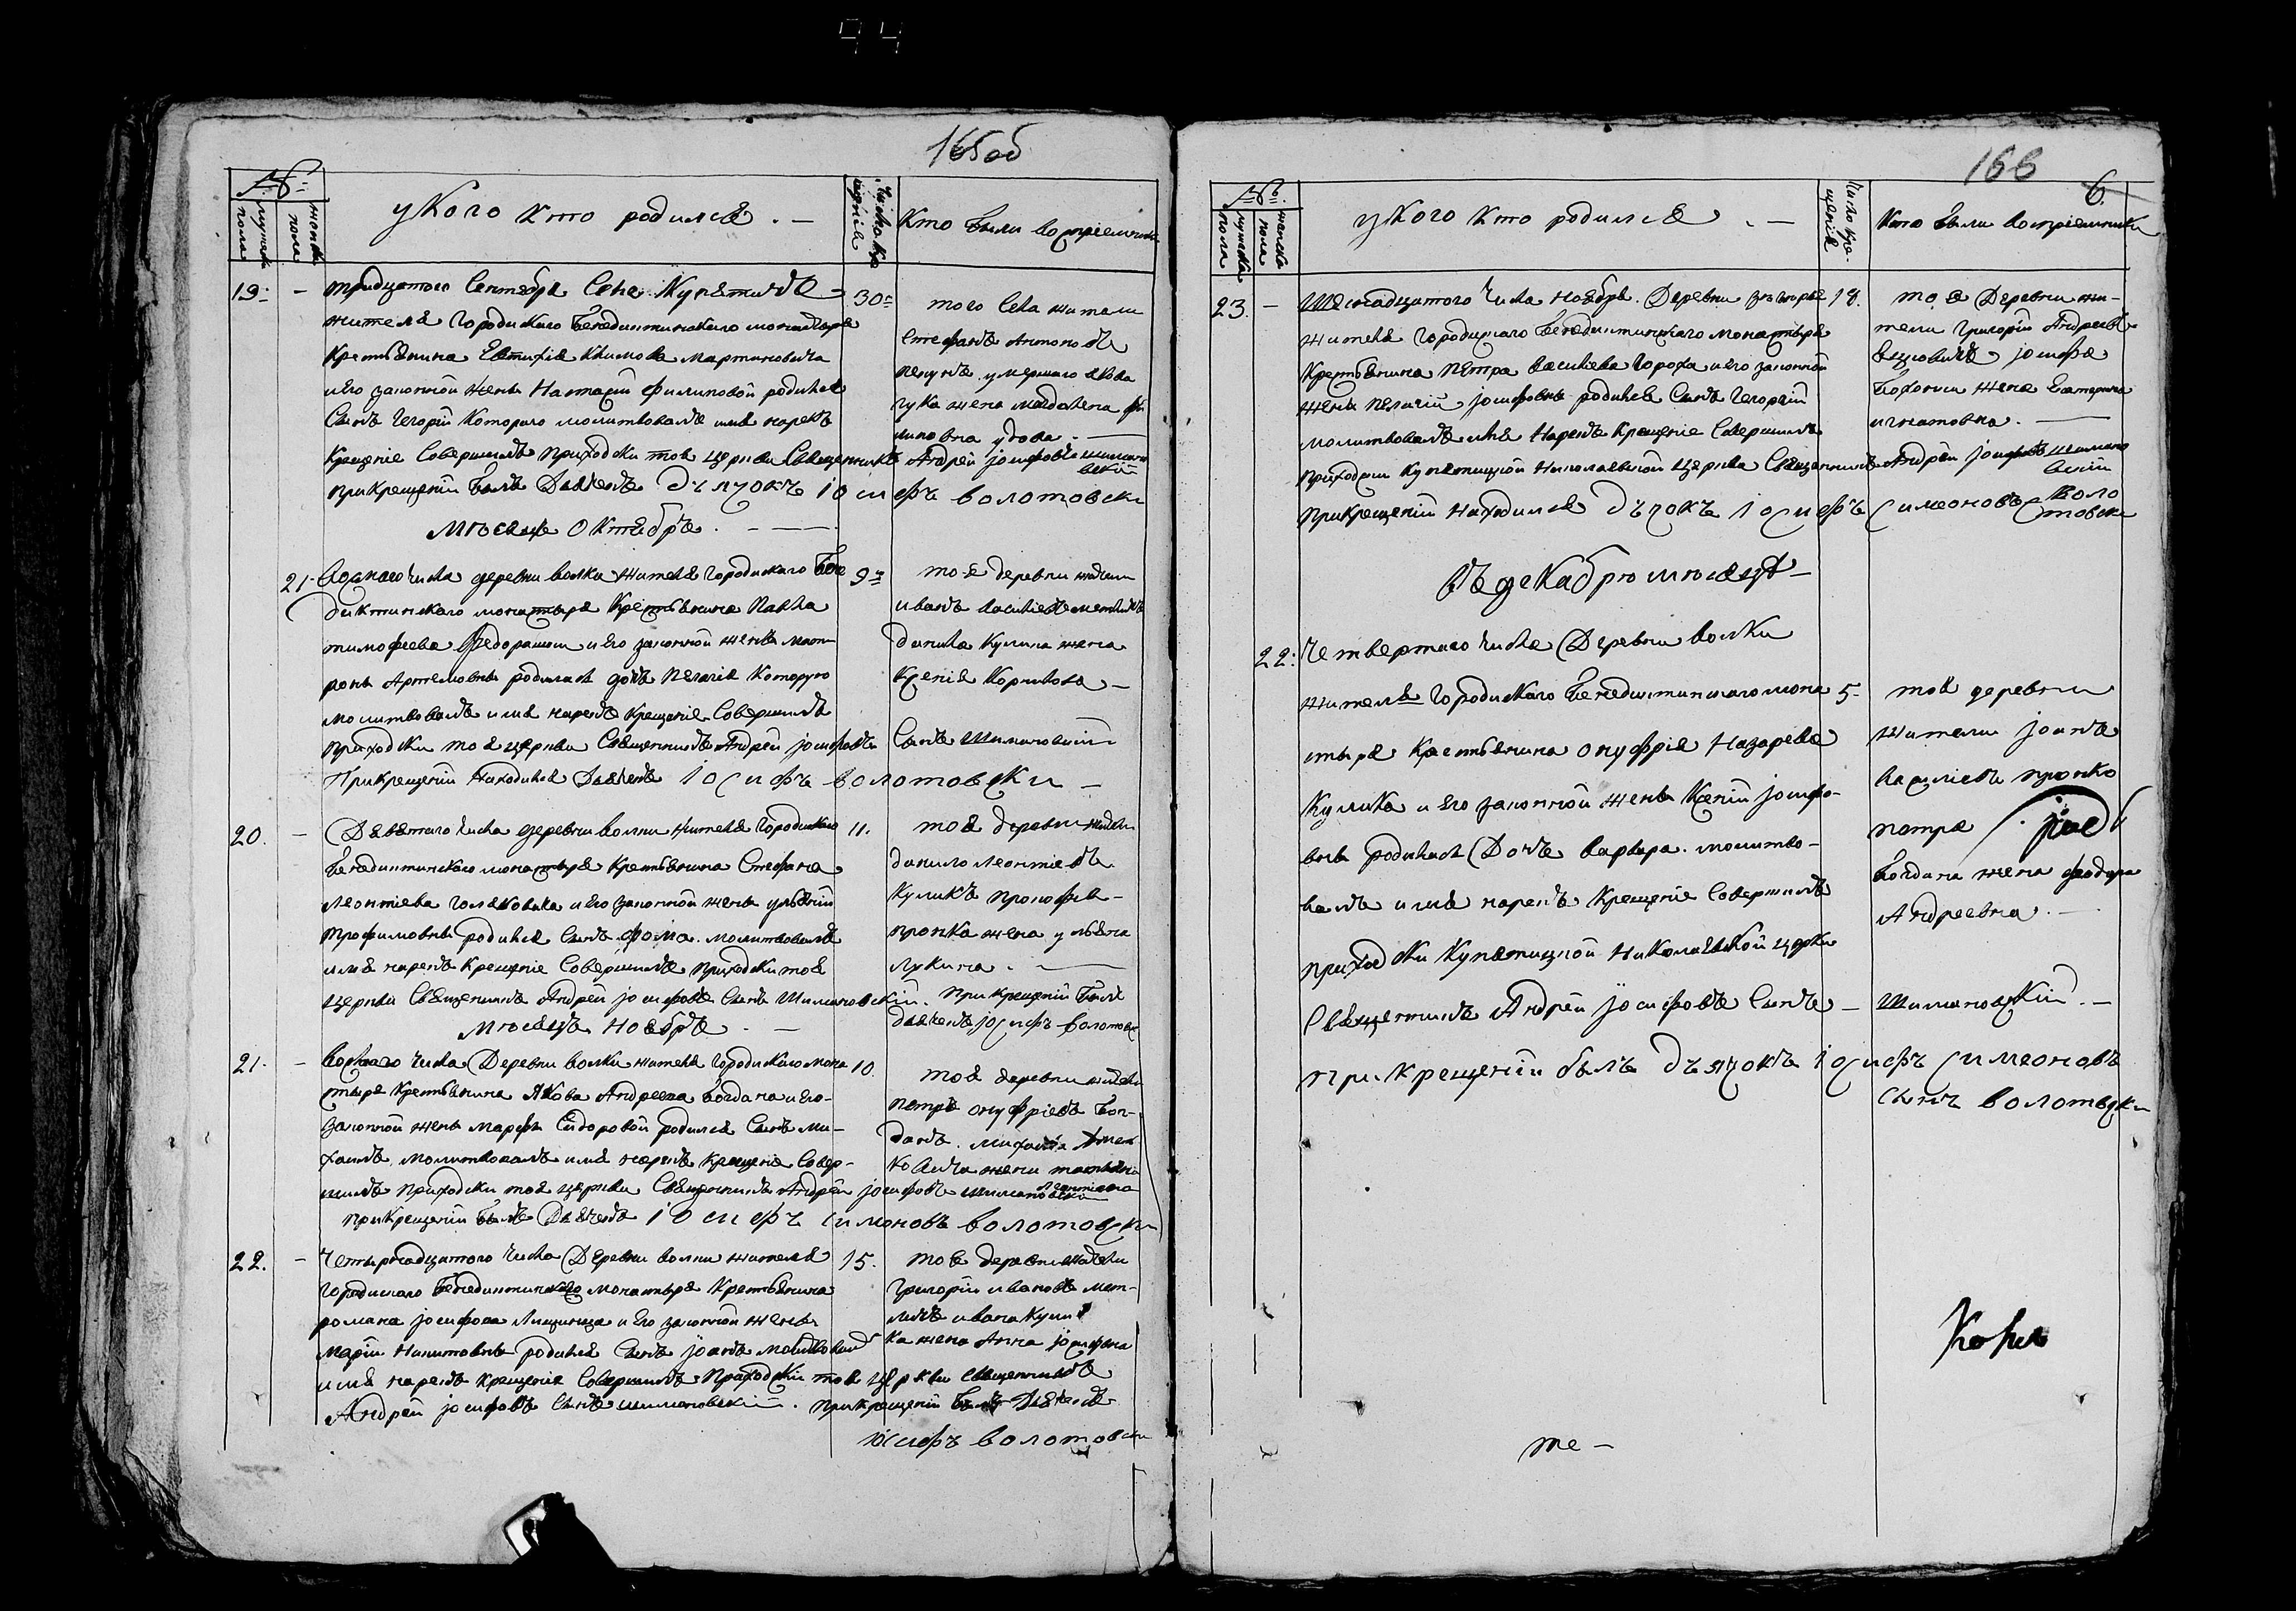 94
165об
№
мужска пола
женска пола
у кого кто родился. —
Число кре щенія
кто были воспріемники
19. —
тридцатого Сентебря Села Купятичъ
жителя Городискаго Бенедиктинскаго монастыря
Крестьянина Евтихія Климова Мартиновича
и его законной жены Настасіи Филиповой родился
Сынъ Георгій Которого молитвовалъ имя нарекъ
Крещеніе Совершилъ приходски тоя церкви Священникъ Андрей Іосифовъ Шиманов вскій
при Крещеніи былъ Дьячекъ дьячокъ Іосифъ волотовски
30
того Села жители
Стефанъ Антоновъ
умершаго Якова
жена Магдалена Фи
липовна удова. —
Мѣсяце Октебрѣ. —
21.
Осмаго числа деревни волки жителя Городискаго Бене
диктинскаго монастыря Крестьянина Павла
Тимофеева и его законной жены Мат
роны Артемовны родилась дочь Пелагія Которую
молитвовалъ имя нарекъ Крещеніе Совершилъ
приходски тоя церкви Священникъ Андрей Іосифовъ Сынъ Шимановскій
При Крещеніи находился Дьячекъ Іосифъ волотовски —
9
тоя деревни жители
иванъ василіевъ
данила Кулика жена
Ксенія Корнилова —
20. —
Девятаго числа деревни волки жителя Городискаго
Бенедиктинскаго монастыря Крестьянина Стефана
Леонтіева и его законной жены Ульянии
Трофимовны родился Сынъ Фома. молитвовалъ
имя нарекъ Крещеніе Совершилъ Приходски тоя
церкви Священникъ Андрей Іосифовъ Сынъ Шимановскій. При Крещеніи былъ
дьячекъ Іосифъ волотовс
11.
тоя деревни жители
данило Леонтіевъ
Куликъ прокофія
пропка жена ульяна
Лукина. —
Мѣсяцъ Ноебрѣ —
21. —
Восмаго числа Деревни волки жителя Городискаго мона
стыря Крестьянина Якова Андреева Богдана и его
законной жены Марфы Сидоровой родился Сынъ Ми-
хаилъ, молитвовалъ имя нарекъ Крещеніе Совер-
шилъ приходски тоя церкви Священникъ Андрей Іосифовъ Шимановски
при Крещеніи былъ Дьячекъ Іосифъ Симоновъ волотовски
10.
тоя деревни жители
Петръ онуфріевъ Бог-
данъ. Михаила
жена татьяна
Леонтіева
22. —
Четырнадцатого числа Деревни волки жителя
Городискаго Бенедиктинскаго монастыря Крестьянина
романа Іосифова и его законной жены
Маріи Никитовны родился Сынъ Іоанъ молитвовалъ
имя нарекъ крещеніе Совершилъ Приходски тоя церкви священникъ
Андрей Іосифовъ Сынъ шимановскій. при крещеніи былъ Дьячекъ
Іосифъ волотовски
15.
тоя деревни жители
Григорій ивановъ
ивана Кули
ка жена Анна Іосифова
166
6
№
мужска пола
женска пола
у кого кто родился. —
Число кре щенія
кто были воспріемники
23. —
Шеснадцатого числа ноября. Деревни
жителя Городискаго Бенедиктинскаго монастыря
Крестьянина Петра василіева Гороха и его законной
жены Пелагіи Іосифовны родился Сынъ Георгій
молитвовалъ имя нарекъ Крещеніе Совершилъ
приходски Купятицкой Николаевской церкви Священникъ Андрей Іосифовъ шимано вскій
при Крещеніи находился дьячокъ Іосифъ Симеоновъ Воло товски
18.
тоя Деревни жи-
тели Григорій Андреевъ
Іосифа
жена Екатерина
игнатовна. —
въ декабрю мѣсяцѣ —
22:
Четвертаго числа Деревни волки
жителя Городискаго Бенедиктинскаго мона
стыря Крестьянина онуфрія Назарева
Кулика и его законной жены Ксеніи Іосифо-
вны родилась Дочъ варвара. молитво-
валъ имя нарекъ Крещеніе Совершилъ
приходски Купятицкой Николаевской церкви
Священникъ Андрей Іосифовъ Сынъ — Шимановскій. —
при крещеніи былъ дьячокъ Іосифъ Симеоновъ
сынъ волотовски
5.
тоя деревни
жители Іоанъ
василіевъ пронко
петра
Богдана жена Феодора
Андреевна. —
те —